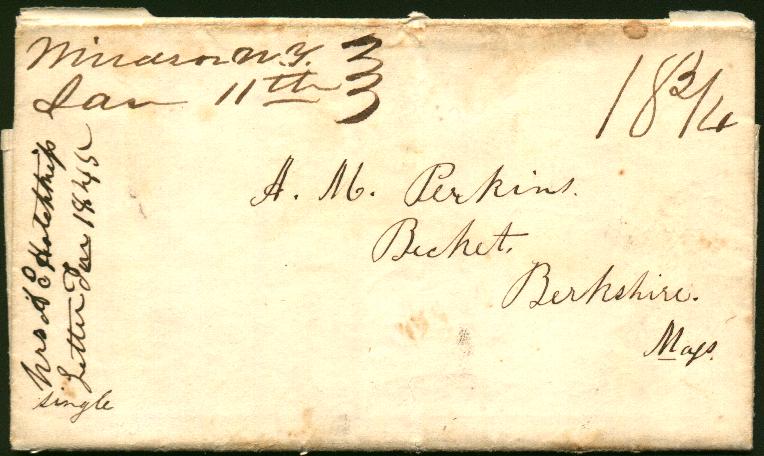 Windsor N.Y.
Jan 11th
18 3/4
A. M. Perkins.
Becket.
Berkshire.
Mass.
Mrs A E Hotchkiss
Letter Jan 1845
single